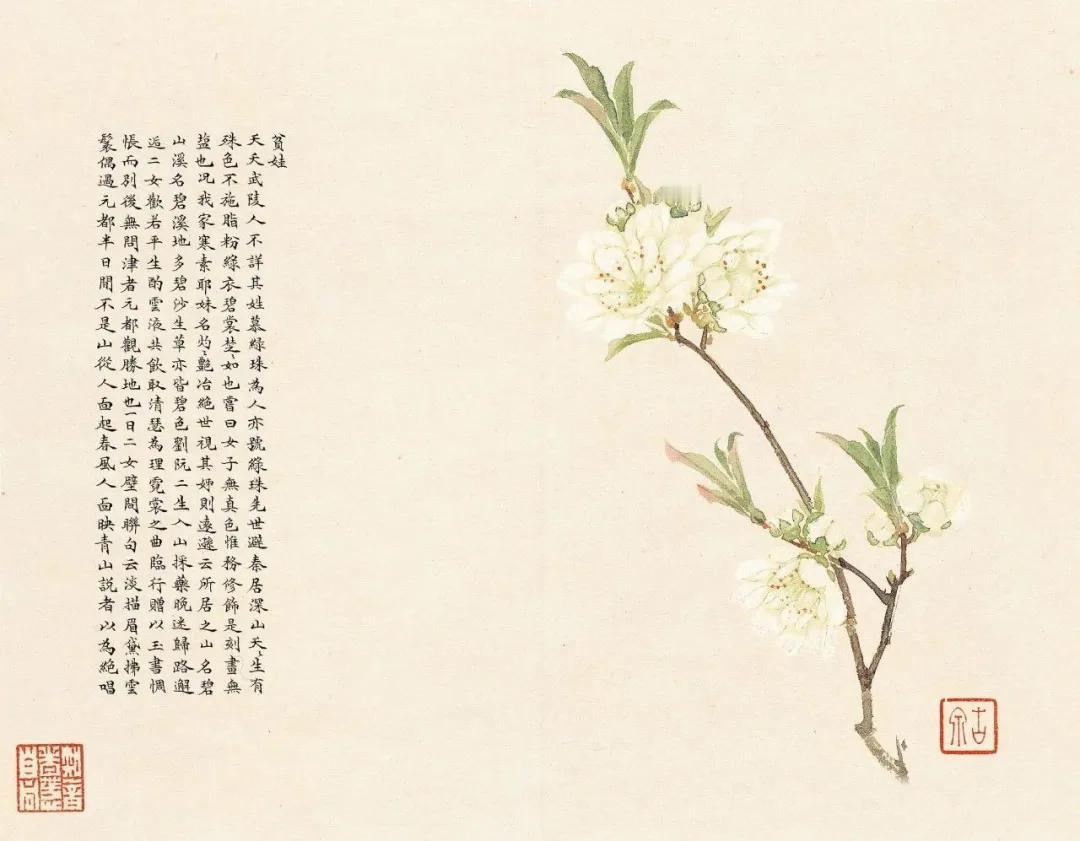 貧娃
夭夭武陵人不詳其姓慕綠珠為人亦號綠珠先世避秦居深山夭〻生有
殊色不施脂粉綠衣碧裳楚〻如也嘗曰女子無真色惟務修飾是刻畫無
鹽也況我家寒素耶妹名灼〻艷冶絕世視其姊則遠遜云所居之山名碧
山溪名碧溪地多碧沙生草亦皆碧色劉阮二生入山採藥晚迷歸路邂
逅二女歡若平生酌雲液共飲取清瑟為理霓裳之曲臨行贈以玉書惆
悵而別後無問津者元都觀勝地也一日二女壁間聯句云淡描眉黛拂雲
鬟偶過元都半日閒不是山從人面起春風人面映青山說者以為絕唱